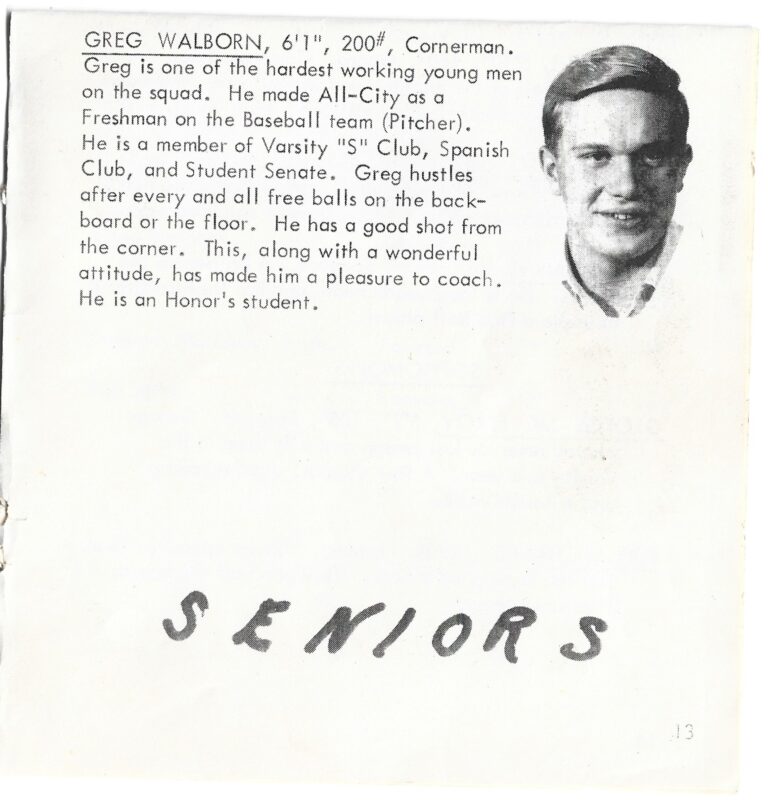 GREG WALBORN, 6'1", 200#, Cornerman.
Greg is one of the hardest working young men
on the squad. He made All-City as a
Freshman on the Baseball team (Pitcher).
He is a member of Varsity "S" Club, Spanish
Club, and Student Senate. Greg hustles
after every and all free balls on the back-
board or the floor. He has a good shot from
the corner. This, along with a wonderful
attitude, has made him a pleasure to coach.
He is an Honor's student.
SENIORS
13